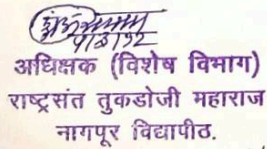 अधिक्षक (विशेष विभाग)
राष्ट्रसंत तुकडोजी महाराज
नागपूर विद्यापीठ.